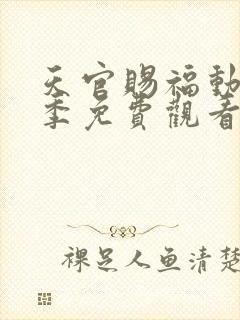 天官賜福動
季免費觀看
裸足人鱼清楚